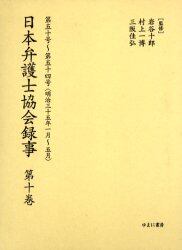 [監修]
岩谷十郎
村上一博
三阪佳弘
第五十号～第五十四号(明治三十五年一月～五月)
日本弁護士協会録事
第十巻
ゆまに書房